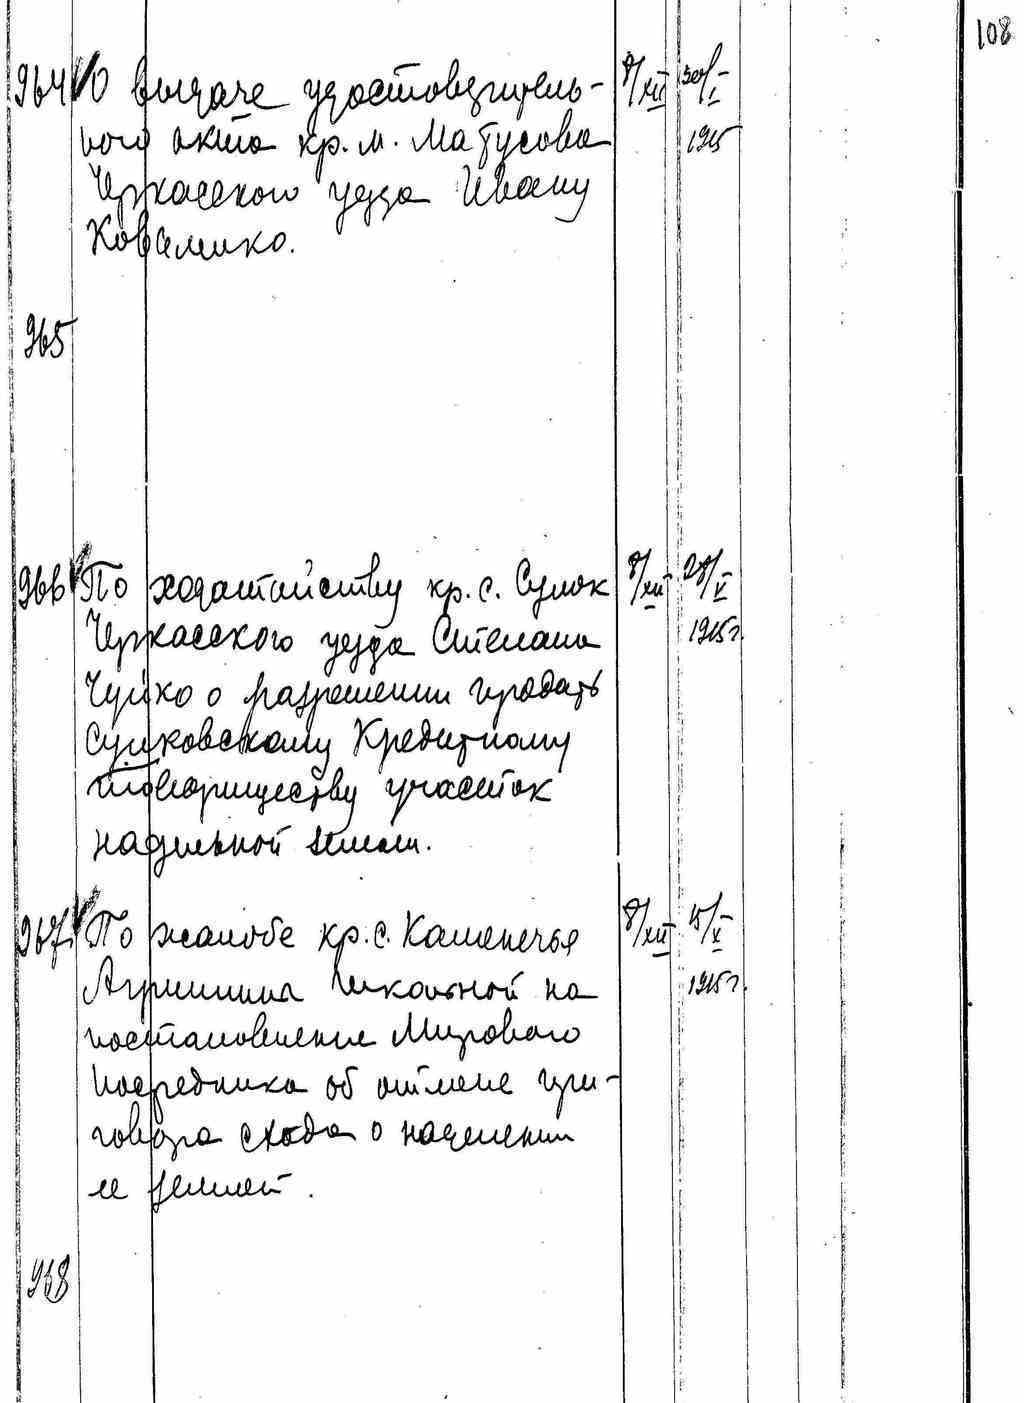 108
964 О выдаче удостоверитель- 8/XII 30/I
ного акта кр. м. Матусова 1915
Черкасского уезда Ивану
Коваленко.
965
966 По ходатайству кр. с. Сунок 8/XII 28/V
Черкасского уезда Степана 1915 г.
Чуйко о разрешении продать
Сунковскому Кредитному
товариществу участок
надельной земли.
967 По жалобе кр. с. Каменечья 8/XII 15/X
Агриппины Школьной на 1915 г.
постановление Мирового
посредника об отмене при-
говора схода о наделении
ее землей.
968